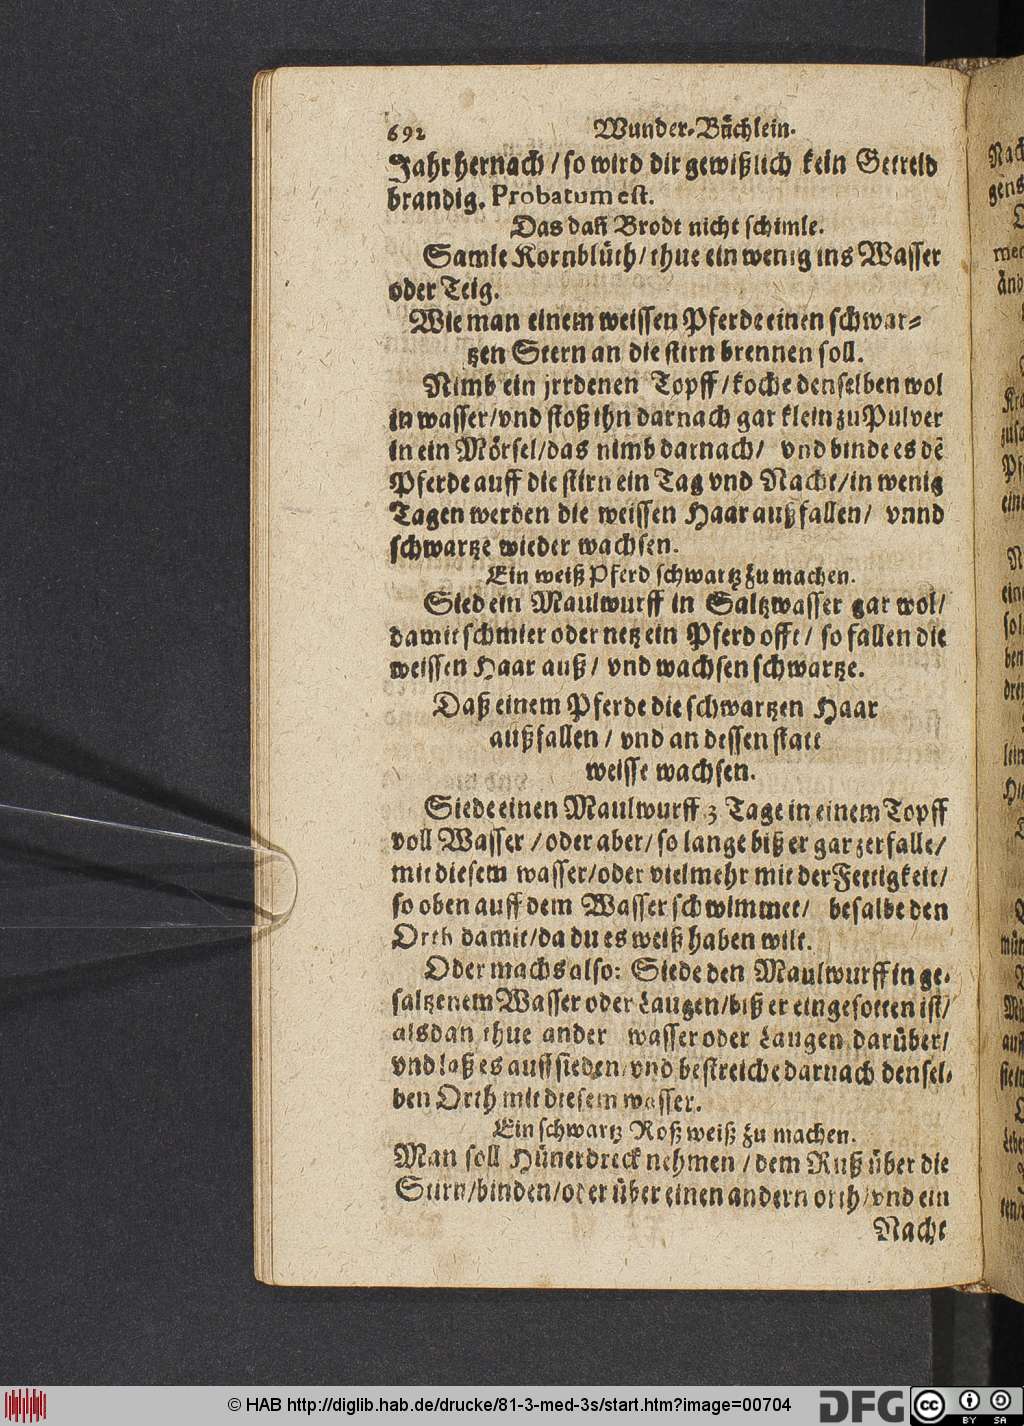 692 Wunder-Bůchlein.
Jahr hernach / so wird dir gewißlich kein Getreid
brandig. Probatum est.
Das dañ Brodt nicht schimle.
Samle Kornblüth / thue ein wenig ins Wasser
oder Teig.
Wie man einem weissen Pferde einen schwar-
tzen Stern an die stirn brennen soll.
Nimb ein jrrdenen Topff / koche denselben wol
in wasser / vnd stoß ihn darnach gar klein zu Pulver
in ein Mörsel / das nimb darnach / vnd binde es dẽ
Pferde auff die stirn ein Tag vnd Nacht / in wenig
Tagen werden die weissen Haar außfallen / vnnd
schwartze wieder wachsen.
Ein weiß Pferd schwartz zu machen.
Sied ein Maulwurff in Saltzwasser gar wol /
damit schmier oder netz ein Pferd offt / so fallen die
weissen Haar auß / vnd wachsen schwartze.
Daß einem Pferde die schwartzen Haar
außfallen / vnd an dessen statt
weisse wachsen.
Siede einen Maulwurff 3 Tage in einem Topff
voll Wasser / oder aber / so lange biß er gar zerfalle /
mit diesem wasser / oder vielmehr mit der Fettigkeit /
so oben auff dem Wasser schwimmet / besalbe den
Orth damit / da du es weiß haben wilt.
Oder machs also: Siede den Maulwurff in ge-
saltzenem Wasser oder Laugen / biß er eingesotten ist /
alsdan thue ander wasser oder Laugen darüber /
vnd laß es auffsieden / vnd bestreiche darnach densel-
ben Orth mit diesem wasser.
Ein schwartz Roß weiß zu machen.
Man soll Hünerdreck nehmen / dem Ruß über die
Stirn / binden / oder über einen andern orth / vnd ein
Nacht
© HAB http://diglib.hab.de/drucke/81-3-med-3s/start.htm?image=00704
DFG
cc
BY SA